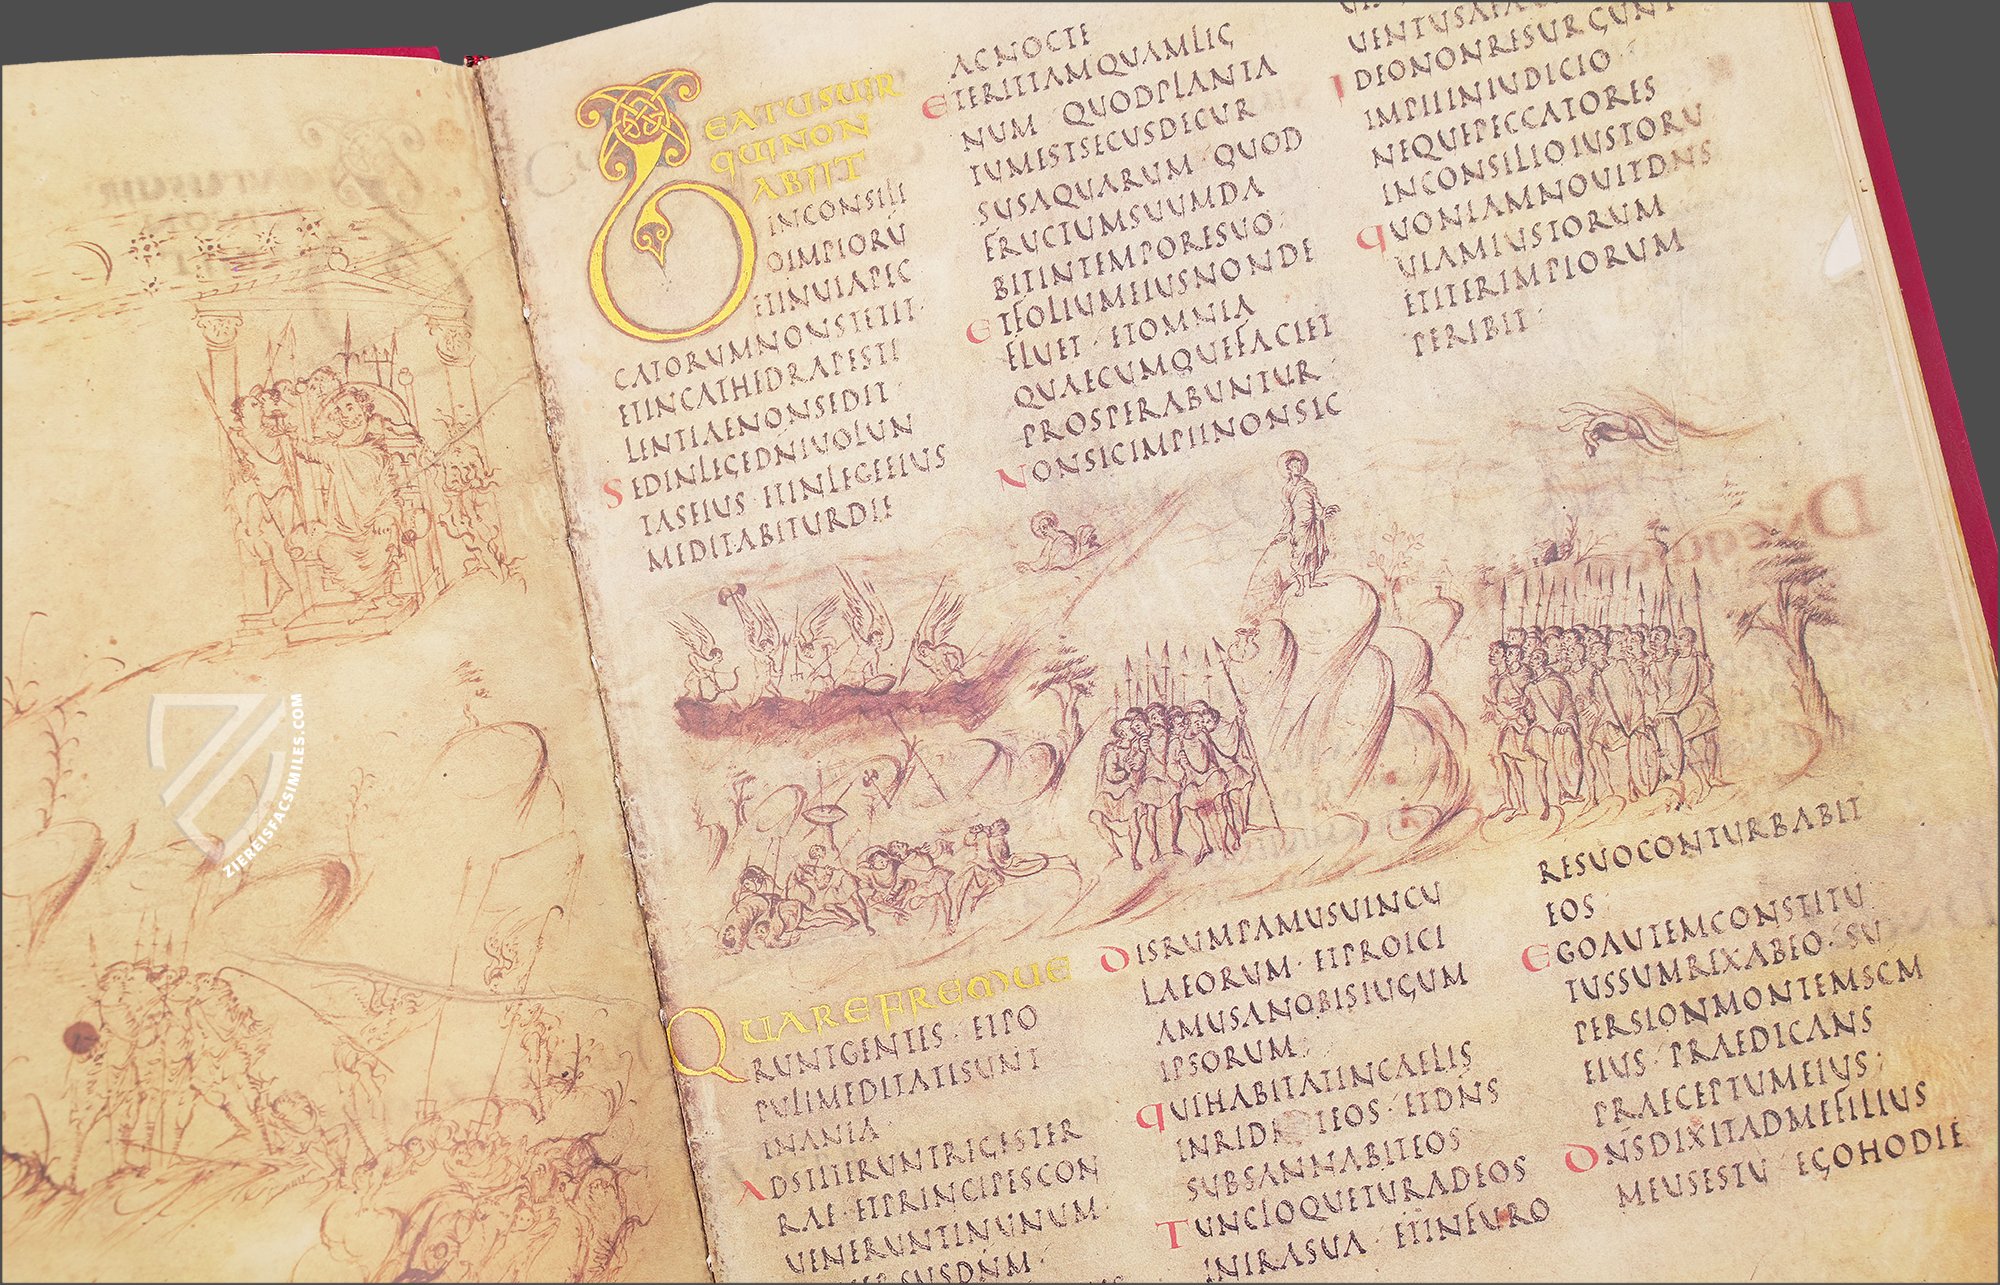 BEATUSUIR
QUINON
ABIIT
INCONSILI
OIMPIORŪ
ETINUIAPEC
CATORUMNONSTETIT·
ETINCATHEDRAPESTI
LENTIAENONSEDIT·
SEDINLEGEDNIUOLUN
TASEIUS·ETINLEGEEIUS
MEDITABITURDIE
ACNOCTE
ETERITTAMQUAMLIG
NUM QUODPLANTA
TUMESTSECUSDECUR
SUSAQUARUM·QUOD
FRUCTUMSUUMDA
BITINTEMPORESUO·
ETFOLIUMEIUSNONDE
FLUET·ETOMNIA
QUAECUMQUEFACIET
PROSPERABUNTUR·
NONSICIMPIINONSIC
IDEONONRESURGUNT
IMPIIINIUDICIO·
NEQUEPECCATORES
INCONSILIOIUSTORU
QUONIAMNOUITDNS
UIAMIUSTORUM
ETITERIMPIORUM
PERIBIT·
QUAREFREMUE
RUNTGENTES·ETPO
PULIMEDITATISUNT
INANIA·
ADSTITERUNTREGESTER
RAE·ETPRINCIPESCON
UENERUNTINUNUM·
DISRUMPAMUSUINCU
LAEORUM·ETPROICI
AMUSANOBISIUGUM
IPSORUM;
QUIHABITATINCAELIS
INRIDE IEOS·ETDNS
SUBSANNABITEOS·
TUNCLOQUETURADEOS
INIRASUA·ETINFURO
RESUOCONTURBABIT
EOS·
EGOAUTEMCONSTITU
TUSSUMREXABEO·SU
PERSIONMONTEMSCM
EIUS·PRAEDICANS
PRAECEPTUMEIUS;
DNSDIXITADMEFILIUS
MEUSESTU EGOHODIE
ZIEREISFACSIMILES.COM